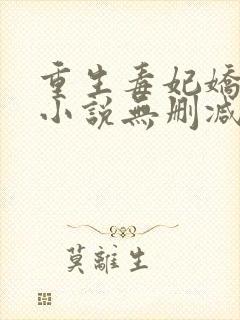 重生毒妃嬌
小説無刪減
莫離生